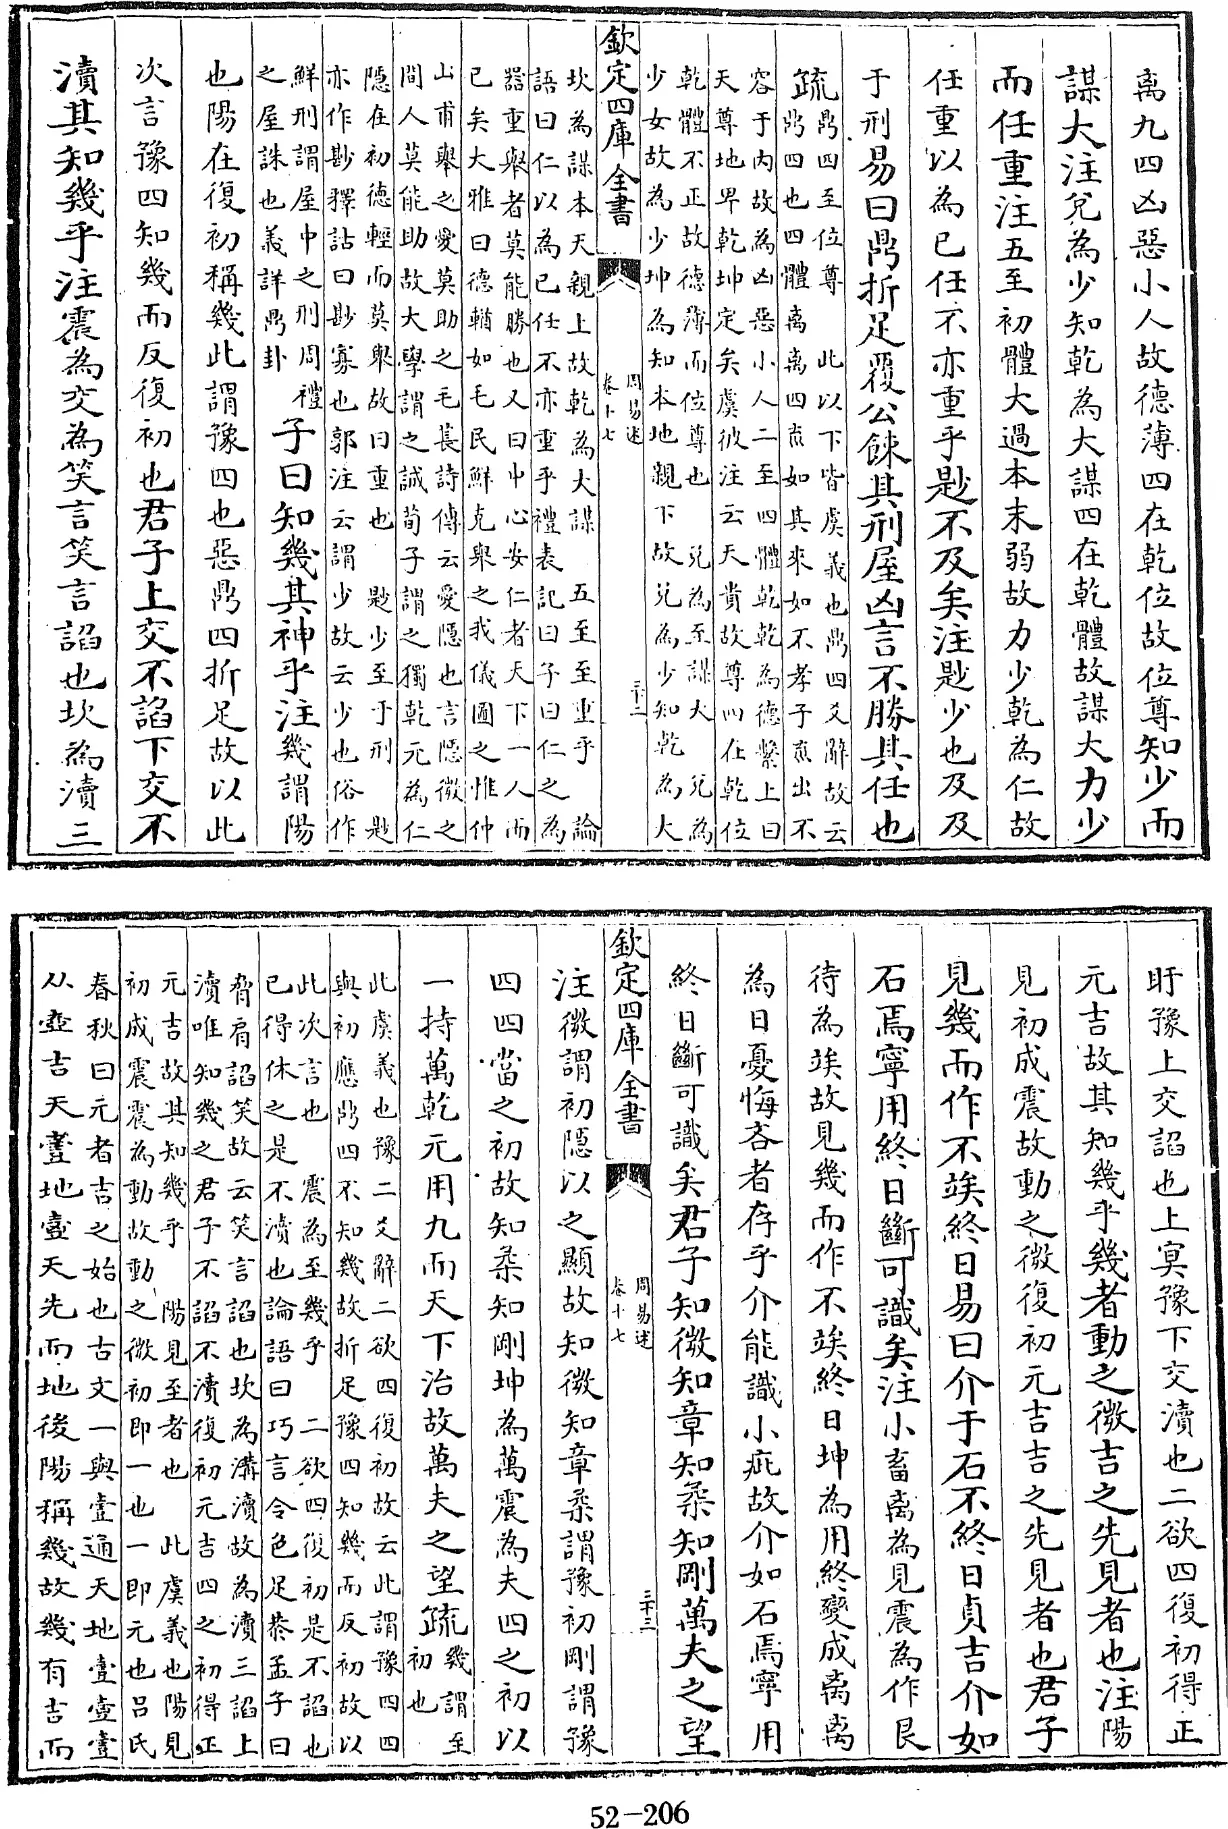 离九四凶惡小人故德薄四在乾位故位尊知少而
謀大注兌為少知乾為大謀四在乾體故謀大力少
而任重注五至初體大過本末弱故力少乾為仁故
任重以為已任不亦重乎尟不及矣注尟少也及及
于刑易曰鼎折足覆公餗其刑屋凶言不勝其任也
疏
鼎四至位尊　此以下皆虞義也鼎四爻辭故云
鼎四也四體离离四焱如其來如不孝子焱出不
容于内故為凶惡小人二至四體乾乾為德繫上曰
天尊地卑乾坤定矣虞彼注云天貴故尊四在乾位
乾體不正故德薄而位尊也　兌為至謀大　兌為
少女故為少坤為知本地親下故兌為少知乾為大
欽定四庫全書
周易述
卷十七
三十二
坎為謀本天親上故乾為大謀　五至至重乎　論
語曰仁以為已任不亦重乎禮表記曰子曰仁之為
器重舉者莫能勝也又曰中心安仁者天下一人而
已矣大雅曰德輶如毛民鮮克舉之我儀圖之惟仲
山甫舉之愛莫助之毛萇詩傳云愛隱也言隱微之
間人莫能助故大學謂之誠荀子謂之獨乾元為仁
隱在初德輕而莫舉故曰重也　尟少至于刑　尟
亦作尠釋詁曰尠寡也郭注云謂少故云少也俗作
鮮刑謂屋中之刑周禮
之屋誅也義詳鼎卦
子曰知幾其神乎注幾謂陽
也陽在復初稱幾此謂豫四也惡鼎四折足故以此
次言豫四知幾而反復初也君子上交不諂下交不
瀆其知幾乎注震為交為笑言笑言諂也坎為瀆三
盱豫上交諂也上冥豫下交瀆也二欲四復初得正
元吉故其知幾乎幾者動之微吉之先見者也注陽
見初成震故動之微復初元吉吉之先見者也君子
見幾而作不竢終日易曰介于石不終日貞吉介如
石焉寧用終日斷可識矣注小畜离為見震為作艮
待為竢故見幾而作不竢終日坤為用終變成离离
為日憂悔吝者存乎介能識小疵故介如石焉寧用
終日斷可識矣君子知微知章知柔知剛萬夫之望
欽定四庫全書
周易述
卷十七
三十三
注微謂初隱以之顯故知微知章柔謂豫初剛謂豫
四四當之初故知柔知剛坤為萬震為夫四之初以
一持萬乾元用九而天下治故萬夫之望疏
幾謂至
初也
此虞義也豫二爻辭二欲四復初故云此謂豫四四
與初應鼎四不知幾故折足豫四知幾而反初故以
此次言也　震為至幾乎　二欲四復初是不諂也
已得休之是不瀆也論語曰巧言令色足恭孟子曰
脅肩諂笑故云笑言諂也坎為溝瀆故為瀆三諂上
瀆唯知幾之君子不諂不瀆復初元吉四之初得正
元吉故其知幾乎　陽見至者也　此虞義也陽見
初成震震為動故動之微初即一也一即元也呂氏
春秋曰元者吉之始也古文一與壹通天地壹壹壹
从壺吉天壹地壹天先而地後陽稱幾故幾有吉而
52-206